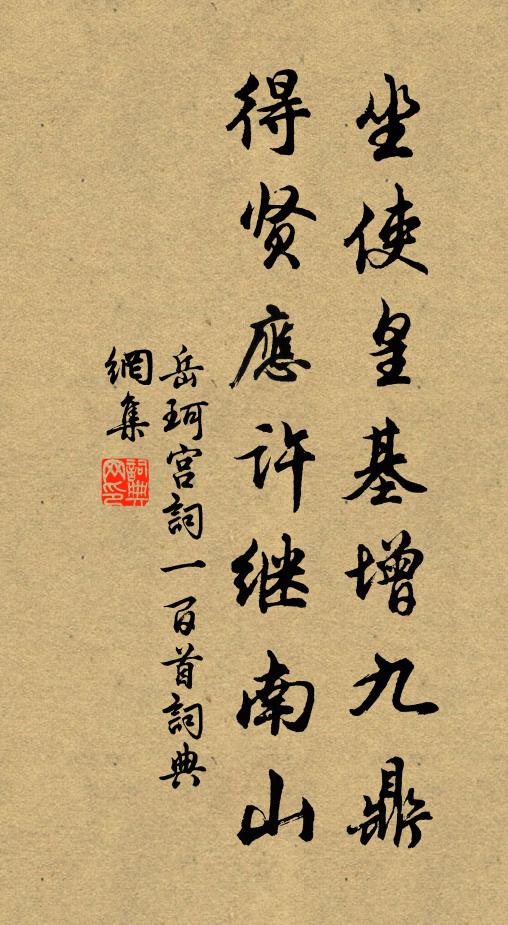 坐使皇基增九鼎
得贤應许继南山
岳珂宫詞一百首詞典
網集
詞典网印